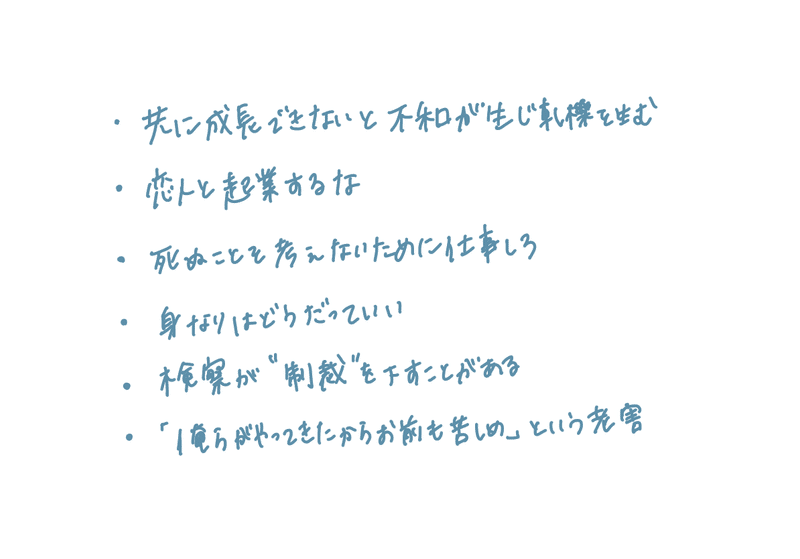 ・共に成長できないと不和が生じ軋轢を生む
・恋人と起業するな
・死ぬことを考えないために仕事しろ
・身なりはどうだっていい
・検察が"制裁"を下すことがある
・「俺らがやってきたからお前も苦しめ」という老害